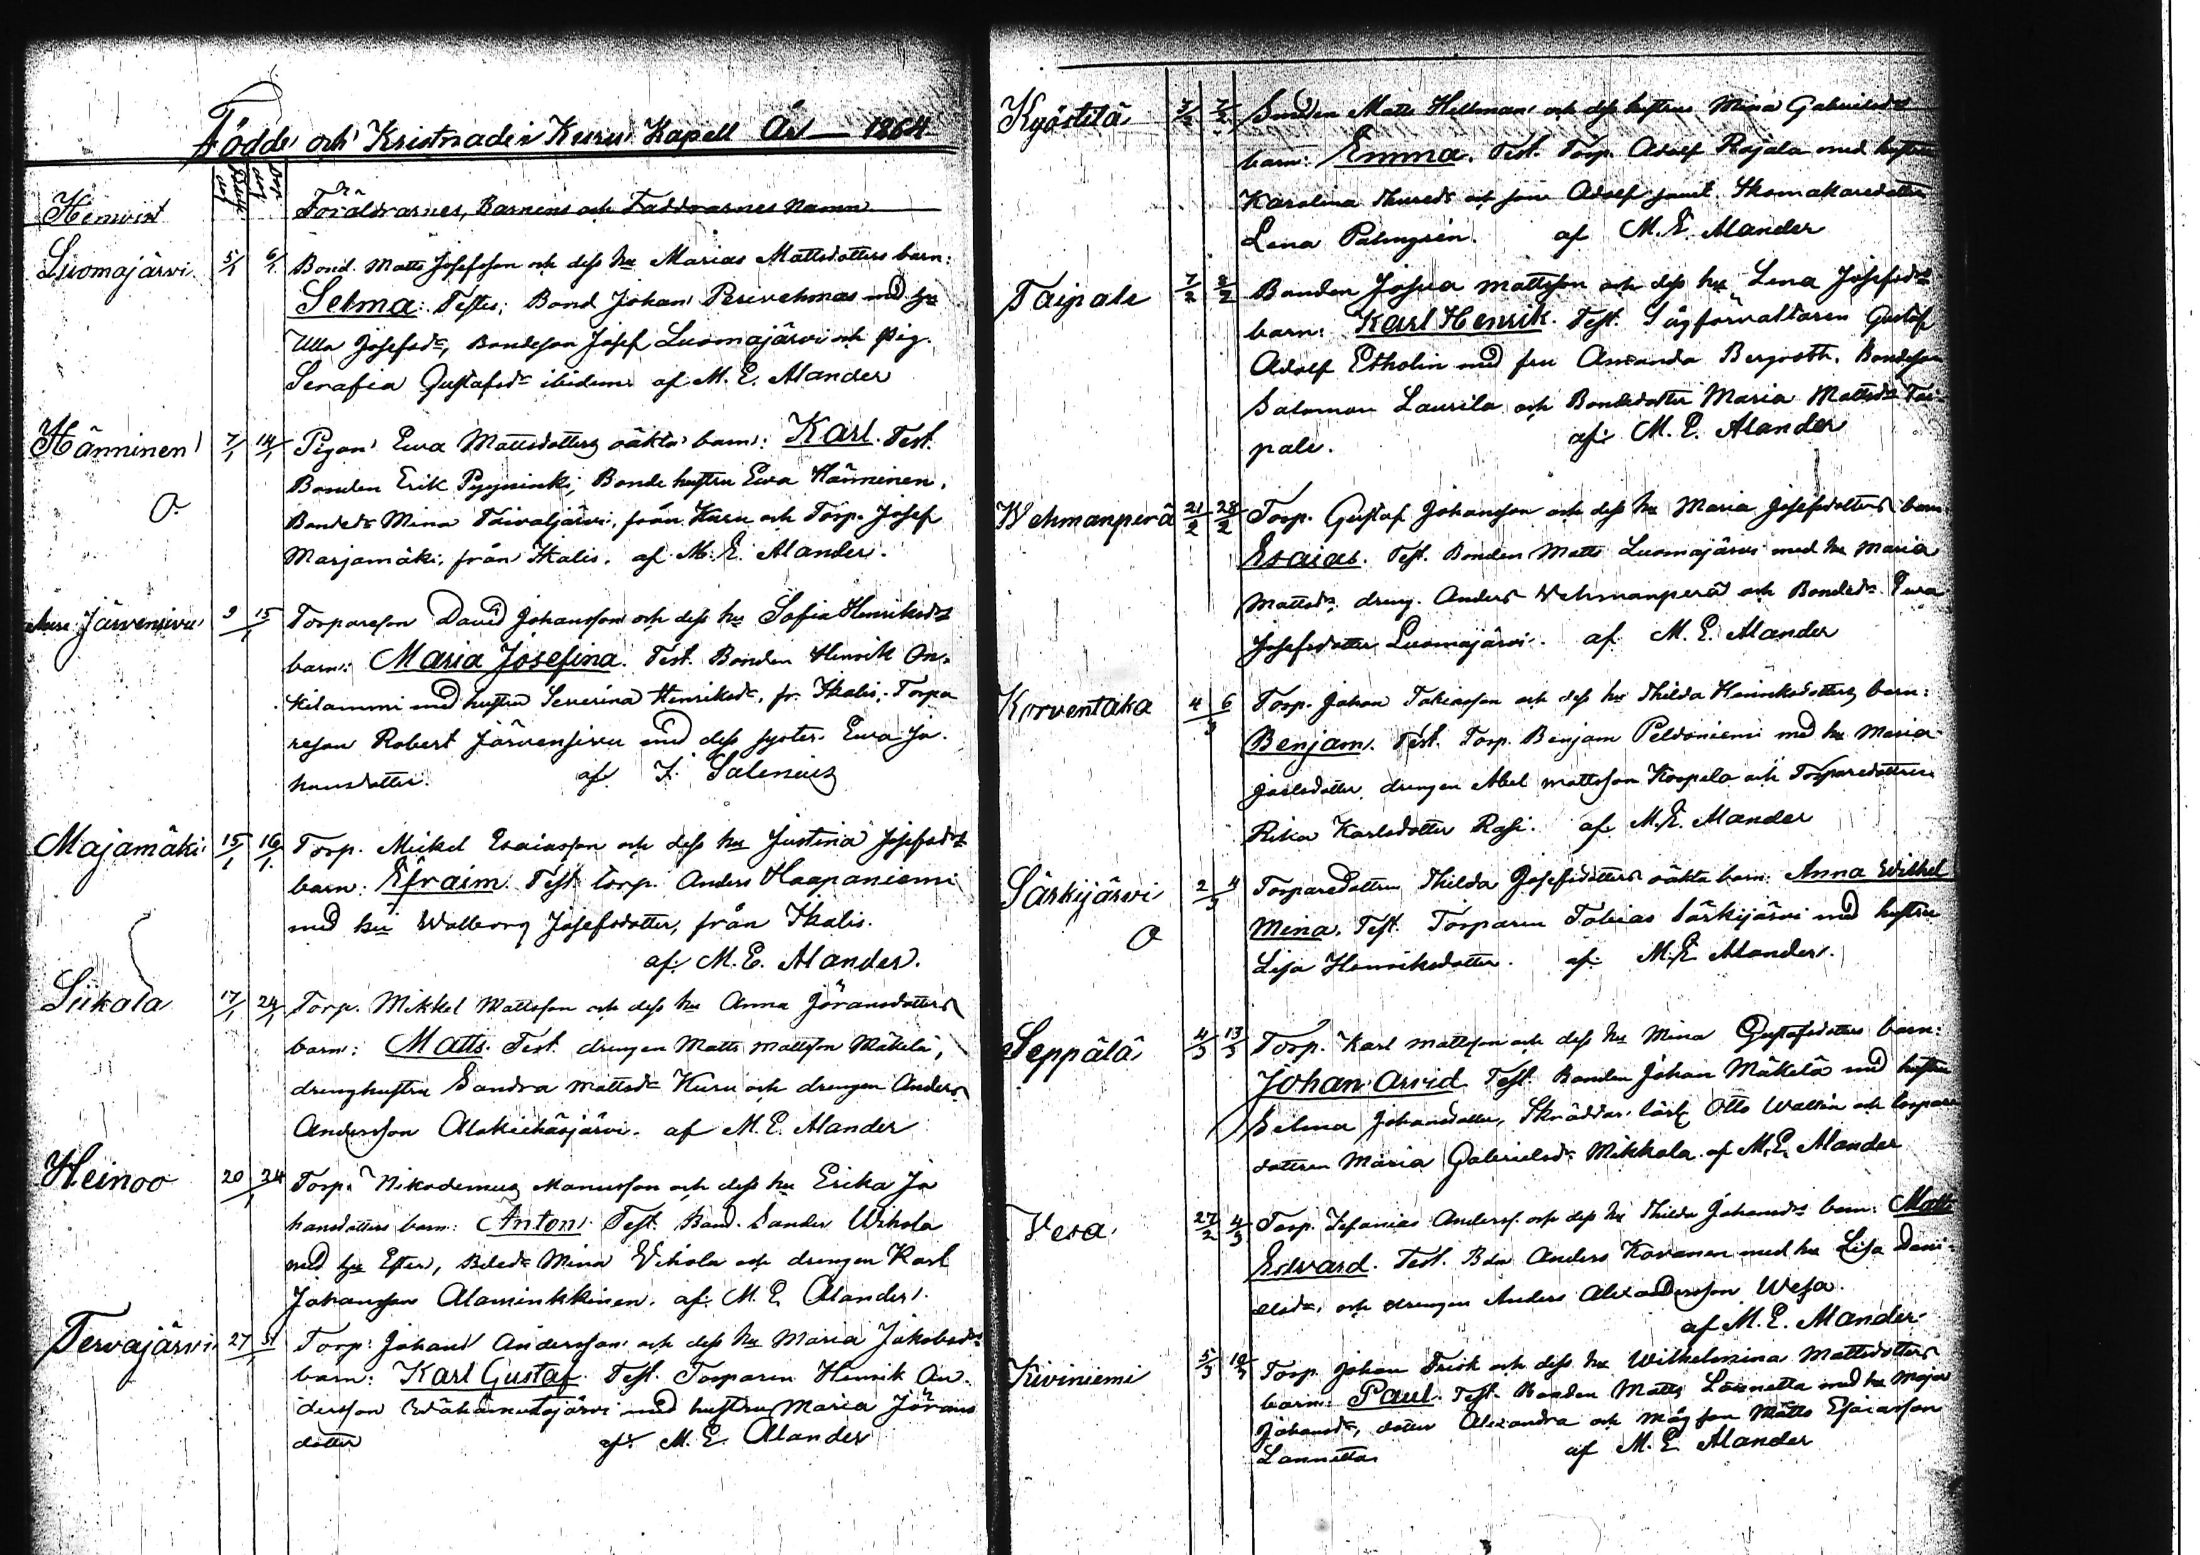 Födde och Kristnade i Kuru Kapell År 1864
Hemvist Föräldrarnes, Barnens och Faddrarnes Namn
Luomajärvi 5/1 6/1 Bond. Matts Josefsson och dess hu Marias Mattsdotters barn:
Selma. Testes: Bond Johan Perivehmas med hu
Ulla Josefsdr, Bondeson Josef Luomajärvi och pig.
Serafia Gustafsdr ibidem af M. E. Alander
Hänninen 7/1 14/1 Pigan Ewa Mattsdotters oäkta barn: Karl. Test.
O. Bonden Erik Pyynikki, Bonde hustru Ewa Hänninen,
Bondedr Mina Taivaljärvi, från Kuru och Torp. Josef
Marjamäki, från Ikalis. af M. E. Alander.
Järvensivu 9 15/1 Torpareson David Johansson och dess hu Sofia Henriksdr
barn: Maria Josefina. Test. Bonden Henrik On-
kilammi med hustru Severina Henriksdr, fr. Ikalis, Torpa
reson Robert Järvensivu med dess syster Ewa Jo-
hansdotter. af F. Salenius
Majamäki 15/1 16/1 Torp. Mickel Esaiasson och dess hu Justina Josefsdr
barn: Efraim. Test. torp. Anders Haapaniemi
med hu Walborg Josefsdotter, från Ikalis.
af M. E. Alander.
Siikala 17/1 24/1 Torp. Mikkel Mattsson och dess hu Anna Göransdotters
barn: Matts. Test. drengen Matts Mattsson Mäkelä,
dreng hustru Sandra Mattsdr Kuru och drengen Anders
Andersson Alakeihäsjärvi. af M. E. Alander
Heinoo 20 24/1 Torp. Nikodemus Manusson och dess hu Erika Jo
hansdotters barn: Anton. Test. Bond. Sander Wihola
med hu Ester, Bdedr Mina Wihola och drengen Karl
Johansson Alaminkkinen. af M. E. Alander.
Tervajärvi 27 31/1 Torp. Johan Andersson och dess hu Maria Jakobsdrs
barn: Karl Gustaf. Test. Torparen Henrik An-
dersson med hustru Maria Jörans
dotter af M. E. Alander
Kyöstilä 3/2 7/2 Smeden Matts Hellman och dess hustru Mina Gabrielsdr
barn: Emma. Test. Torp. Adolf Rajala med hustru
Karolina Thuredr och son Adolf samt Skomakaredotter
Lena Palmgrén. af M. E. Alander
Taipale 7/2 8/2 Bonden Josua Mattsson och dess hu Lena Josefsdrs
barn: Karl Henrik. Test. Sågförvaltaren Gustaf
Adolf Etholin med fru Amanda Bergroth, Bondeson
Salomon Laurila och Bondedotter Maria Mattsdr Tai-
pale. af M. E. Alander
Wehmanperä 21/2 28/2 Torp. Gustaf Johansson och dess hu Maria Josefsdotters barn
Esaias. Test. Bonden Matts Luomajärvi med hu Maria
Mattsdr, dreng. Anders Wehmanperä och Bondedr Ewa
Josefsdotter Luomajärvi. af M. E. Alander
Korventaka 4 6/3 Torp. Johan Tobiasson och dess hu Thilda Henriksdotters barn:
Benjam. Test. Torp. Benjam Peltoniemi med hu Maria
Joelsdotter, drengen Abel Mattsson Koopela och Torparedottren
Rika Karlsdotter Rasi. af M. E. Alander
Särkijärvi 2 4/3 Torparedottren Thilda Josefsdotters oäkta barn: Anna Wilhel
O mina. Test. Torparen Tobias Särkijärvi med hustru
Lisa Henriksdotter. af M. E. Alander.
Seppälä 4/3 13/3 Torp. Karl Mattsson och dess hu Mina Gustafsdotters barn:
Johan Arvid. Test. Bonden Johan Mäkelä med hustru
Selma Johansdotter, Skräddar lärl. Otto Wallin och torpare
dottren Maria Gabrielsdr Mikkola. af M. E. Alander
Vesa 27/2 4/3 Torp. Sefanias Anderss. och dess hu Thilda Johansdrs barn: Matts
Edvard. Test. Bdn Anders Kovanen med hu Lisa Dani-
elsdr, och drengen Anders Alexandersson Wesa.
af M. E. Alander
Kiviniemi 5/3 Torp. Johan Frisk och dess hu Wilhelmina Mattsdotters
barn: Paul. Test. Bonden Matts Lannetta med hu Maja
Johansdr, dotter Alexandra och måg son Matts Esaiasson
Lannetta af M. E. Alander